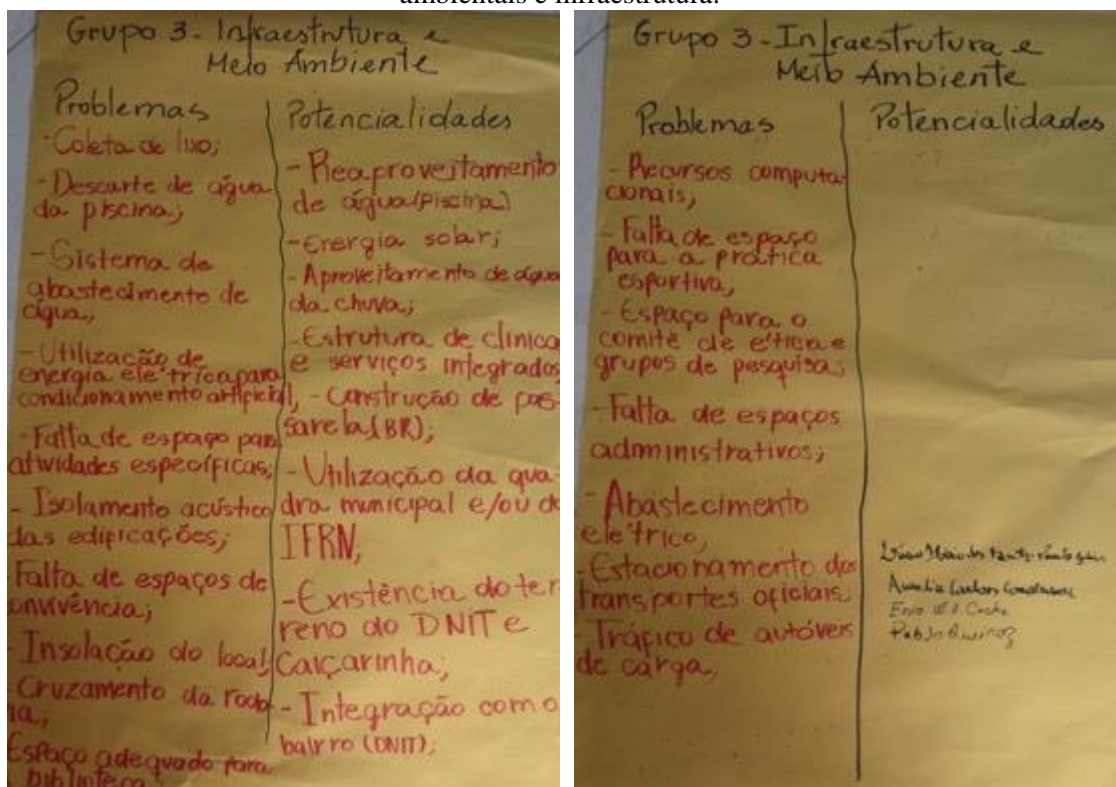 ambientais e infraestrutura.
Grupo 3 - Infraestrutura e
Meio Ambiente
Problemas
- Coleta de lixo;
- Descarte de água
da piscina;
- Sistema de
abastecimento de
água;
- Utilização de
energia elétrica para
condicionamento artificial,
- Falta de espaço para
atividades específicas;
- Isolamento acústico
das edificações;
Falta de espaços de
onvivência;
- Insolação do local;
- Cruzamento da rodo
ia,
Espaço adequado para
biblioteca
Potencialidades
- Reaproveitamento
de água (piscina)
- Energia solar;
- Aproveitamento de água
da chuva;
- Estrutura de clínica
e serviços integrados
- Construção de pas-
sarela (BR);
- Utilização da qua-
dra municipal e/ou do
IFRN;
- Existência do ter
reno do DNIT e
Caiçarinha;
- Integração com o
bairro (DNIT);
Grupo 3 - Infraestrutura e
Meio Ambiente
Problemas
- Recursos computa-
cionais;
- Falta de espaço
para a prática
esportiva;
- Espaço para o
comitê de ética e
grupos de pesquisa;
- Falta de espaços
administrativos;
- Abastecimento
elétrico,
- Estacionamento dos
transportes oficiais;
- Tráfico de autóveis
de carga,
Potencialidades
Pablo Queiroz